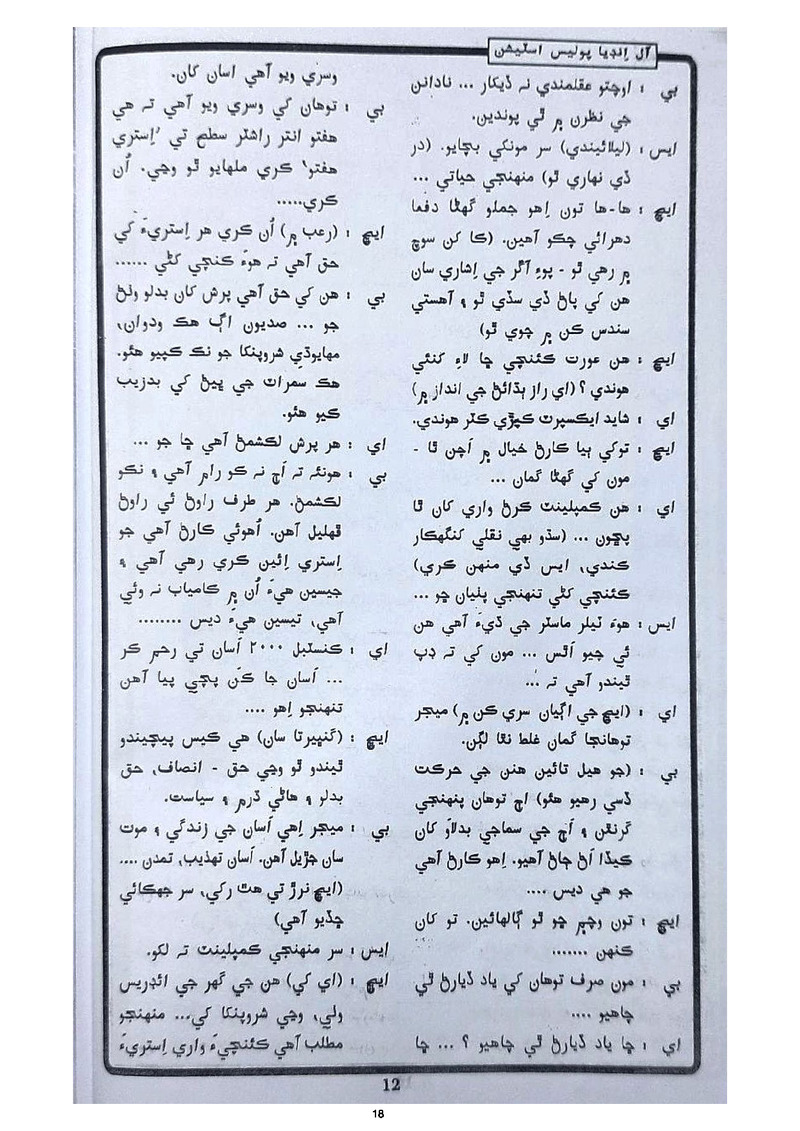 آل اِنڊيا پوليس اسٽيشن
بي : اوچتو عقلمندي نہ ڏيکار ... نادانن
جي نظرن ۾ ٿي پوندين.
ايس : (ليلائيندي) سر مونکي بچايو. (در
ڏي نهاري ٿو) منهنجي حياتي ...
ايڇ : ها-ها تون اِهو جملو گهڻا دفعا
دهرائي چڪو آهين. (ڪا کن سوچ
۾ رهي ٿو - پوءِ آڱر جي اِشاري سان
هن کي پاڻ ڏي سڏي ٿو ۽ آهستي
سندس ڪن ۾ چوي ٿو)
ايڇ : هن عورت ڪئنچي ڇا لاءِ کنئي
هوندي ؟ (اي راز ٻڌائڻ جي انداز ۾)
اي : شايد ايڪسپرٽ ڪپڙي ڪٽر هوندي.
ايڇ : توکي ٻيا ڪارڻ خيال ۾ اَچن ٿا -
مون کي گهڻا گمان ...
اي : هن ڪمپلينٽ ڪرڻ واري کان ٿا
پڇون ... (سڏو بهي نقلي کنگهڪار
ڪندي، ايس ڏي منهن ڪري)
ڪئنچي کڻي تنهنجي پٺيان ڇو ...
ايس : هوءَ ٽيلر ماسٽر جي ڌيءَ آهي هن
ئي چيو اَٿس ... مون کي تہ ڊپ
ٿيندو آهي تہ ...
اي : (ايڇ جي اڳيان سري ڪن ۾) ميجر
توهانجا گمان غلط نٿا لڳن.
بي : (جو هيل تائين هنن جي حرڪت
ڏسي رهيو هئو) اڄ توهان پنهنجي
گرنٿن ۽ اَڄ جي سماجي بدلاوَ کان
ڪيڏا اَڻ ڄاڻ آهيو. اِهو ڪارڻ آهي
جو هي ديس ....
ايڇ : تون وچم ڇو ٿو ڳالهائين. تو کان
ڪنهن .......
بي : مون صرف توهان کي ياد ڏيارڻ ٿي
چاهيو ....
اي : ڇا ياد ڏيارڻ ٿي چاهيو ؟ ... ڇا
وسري ويو آهي اسان کان.
بي : توهان کي وسري ويو آهي تہ هي
هفتو انتر راشٽر سطح تي ’اِستري
هفتو‘ ڪري ملهايو ٿو وڃي. اُن
ڪري.....
ايڇ : (رعب ۾) اُن ڪري هر اِستريءَ کي
حق آهي تہ هوءَ ڪنچي کڻي ......
بي : هن کي حق آهي پرش کان بدلو وٺڻ
جو ... صديون اڳ هڪ ودوان،
مهايوڌي شروپنکا جو نڪ ڪپيو هئو.
هڪ سمراٽ جي ڀيڻ کي بدزيب
ڪيو هئو.
اي : هر پرش لڪشمڻ آهي ڇا جو ...
بي : هونئہ تہ اَڄ نہ ڪو رام آهي ۽ نڪو
لڪشمڻ. هر طرف راوڻ ئي راوڻ
ڦهليل آهن. اُهوئي ڪارڻ آهي جو
اِستري اِئين ڪري رهي آهي ۽
جيسين هيءَ اُن ۾ ڪامياب نہ وئي
آهي، تيسين هيءَ ديس ........
اي : ڪنسٽبل ٢٠٠٠ اَسان تي رحم ڪر
... اَسان جا ڪَن پچي پيا آهن
تنهنجو اِهو ....
ايڇ : (گنڀيرتا سان) هي ڪيس پيچيندو
ٿيندو ٿو وڃي حق - انصاف، حق
بدلو ۽ هاڻي ڌرم ۽ سياست.
بي : ميجر اِهي اَسان جي زندگي ۽ موت
سان جڙيل آهن. اَسان تهذيب، تمدن ....
(ايڇ نرڙ تي هٿ رکي، سر جهڪائي
ڇڏيو آهي)
ايس : سر منهنجي ڪمپلينٽ تہ لکو.
ايڇ : (اي کي) هن جي گهر جي ائڊريس
ولي، وڃي شروپنکا کي... منهنجو
مطلب آهي ڪئنچيءَ واري اِستريءَ
12
18